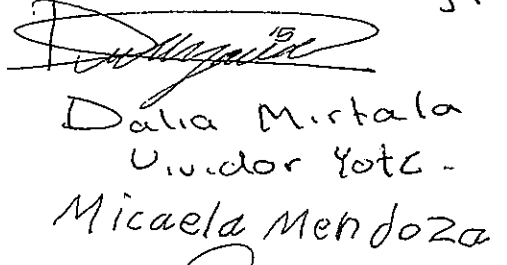 Dalia Mirtala
Vividor Yotc.
Micaela Mendoza